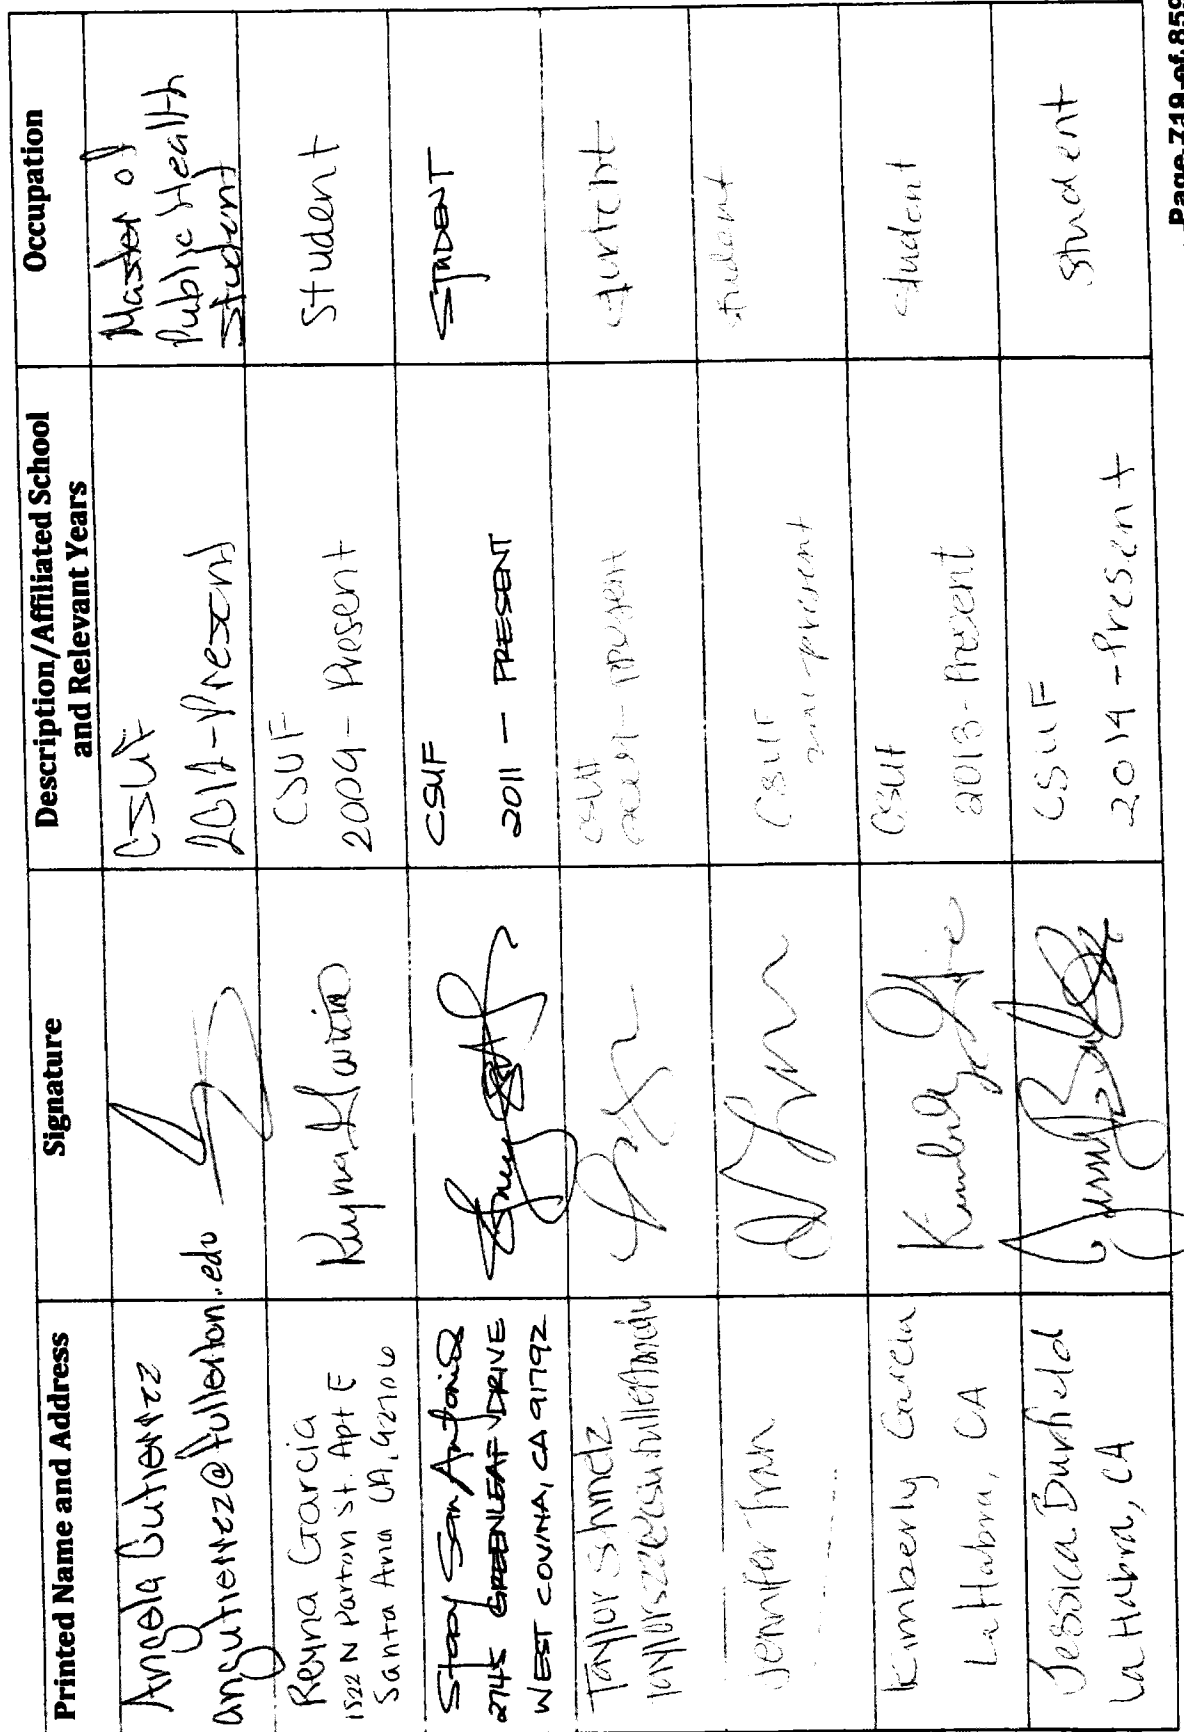 Printed Name and Address
Signature
Description/Affiliated School
and Relevant Years
Occupation
Angela Gutierrez
angutierrez@fullerton.edu
CSUF
2012-Present
Master of
Public Health
Student
Reyna Garcia
1522 N Parton St. Apt E
Santa Ana CA, 92706
Reyna Garcia
CSUF
2009-Present
Student
Stacy San Antonio
2745 GREENLEAF DRIVE
WEST COVINA, CA 91792
CSUF
2011 - PRESENT
STUDENT
Taylor Shmelz
CSUF
- present
student
Jennifer Tran
CSUF
-present
student
Kimberly Garcia
La Habra, CA
Kimberly
CSUF
2013-Present
Student
Jessica Burfield
La Habra, CA
CSUF
2014-Present
Student
Page 719 of 859